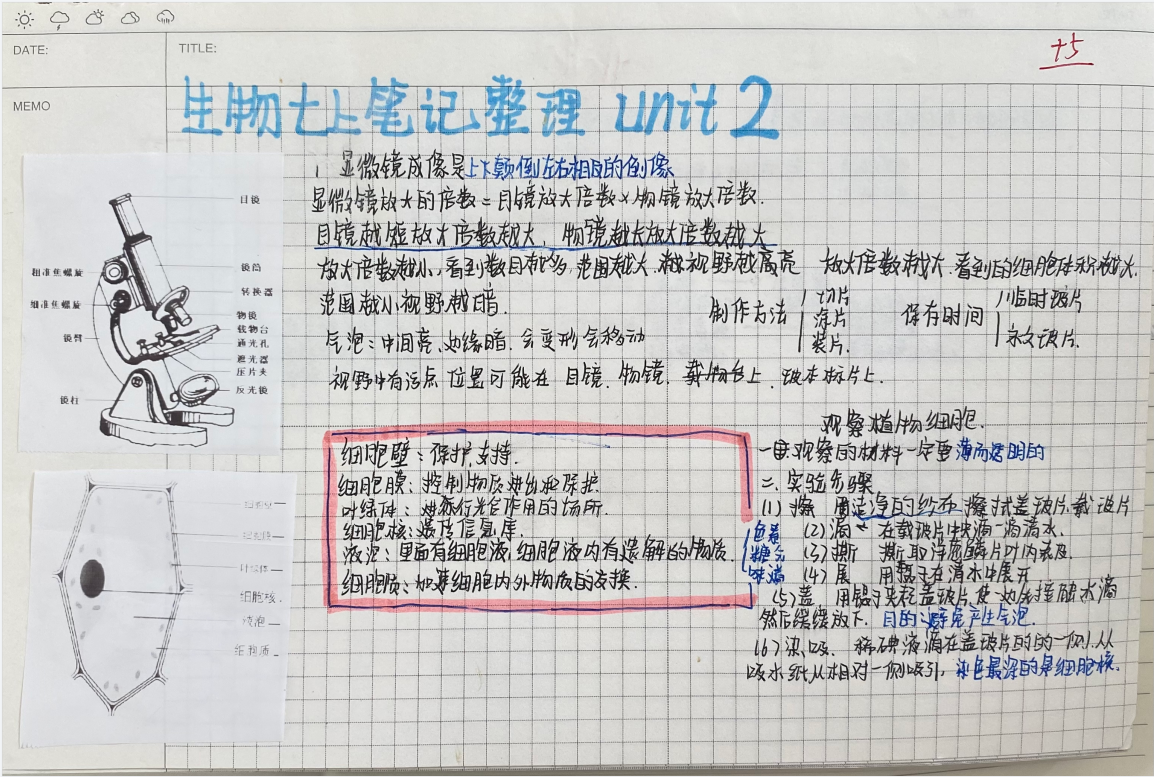 DATE:
TITLE:
+5
MEMO
生物七上笔记整理 unit 2
1. 显微镜成像是上下颠倒左右相反的倒像
显微镜放大的倍数=目镜放大倍数×物镜放大倍数.
目镜越短放大倍数越大、物镜越长放大倍数越大
放大倍数越小、看到数目越多,范围越大、视野越高亮 放大倍数越大.看到的细胞体积越大.
范围越小视野越暗.
制作方法 切片 涂片 装片.
保存时间 临时玻片 永久玻片.
气泡:中间亮、边缘暗.会变形会移动
视野中有污点 位置可能在 目镜.物镜.载物台上.玻本标片上.
目镜
镜筒
转换器
物镜
载物台
通光孔
遮光器
压片夹
反光镜
粗准焦螺旋
细准焦螺旋
镜臂
镜柱
细胞壁:保护.支持.
细胞膜:控制物质进出和保护.
叶绿体:进行光合作用的场所.
细胞核:遗传信息库.
液泡:里面有细胞液.细胞液内有溶解的物质.
细胞质:加速细胞内外物质的交换.
色素
糖分
味道
叶绿体
细胞核.
液泡
细胞质
观察植物细胞.
一要观察的材料一定要薄而透明的
二.实验步骤
(1)擦 用洁净的纱布擦拭盖玻片、载玻片
(2)滴 在载玻片中央滴一滴清水.
(3)撕 撕取洋葱鳞片叶内表皮
(4)展 用镊子在清水中展开
(5)盖 用镊子夹起盖玻片使一边先接触水滴
然后缓缓放下. 目的:避免产生气泡.
(6)染、吸、 稀碘液滴在盖玻片的的一侧.从
吸水纸从相对一侧吸引, 染色最深的是细胞核.